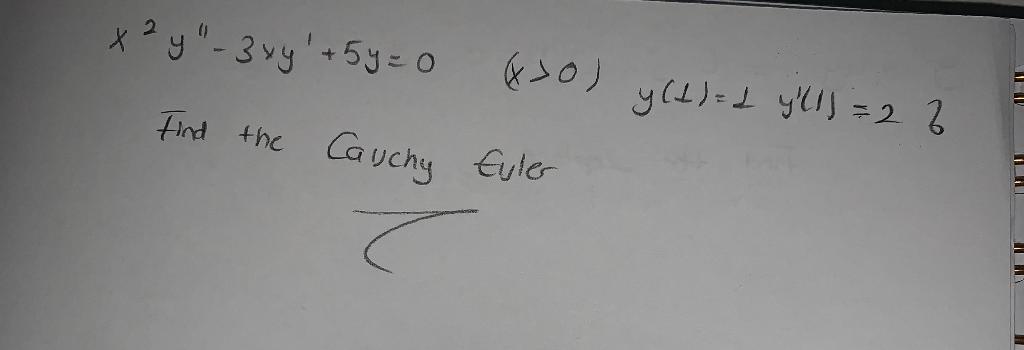 x² y'' - 3xy' + 5y = 0 (x > 0) y(1) = 1 y'(1) = 2 ?
Find the Cauchy Euler